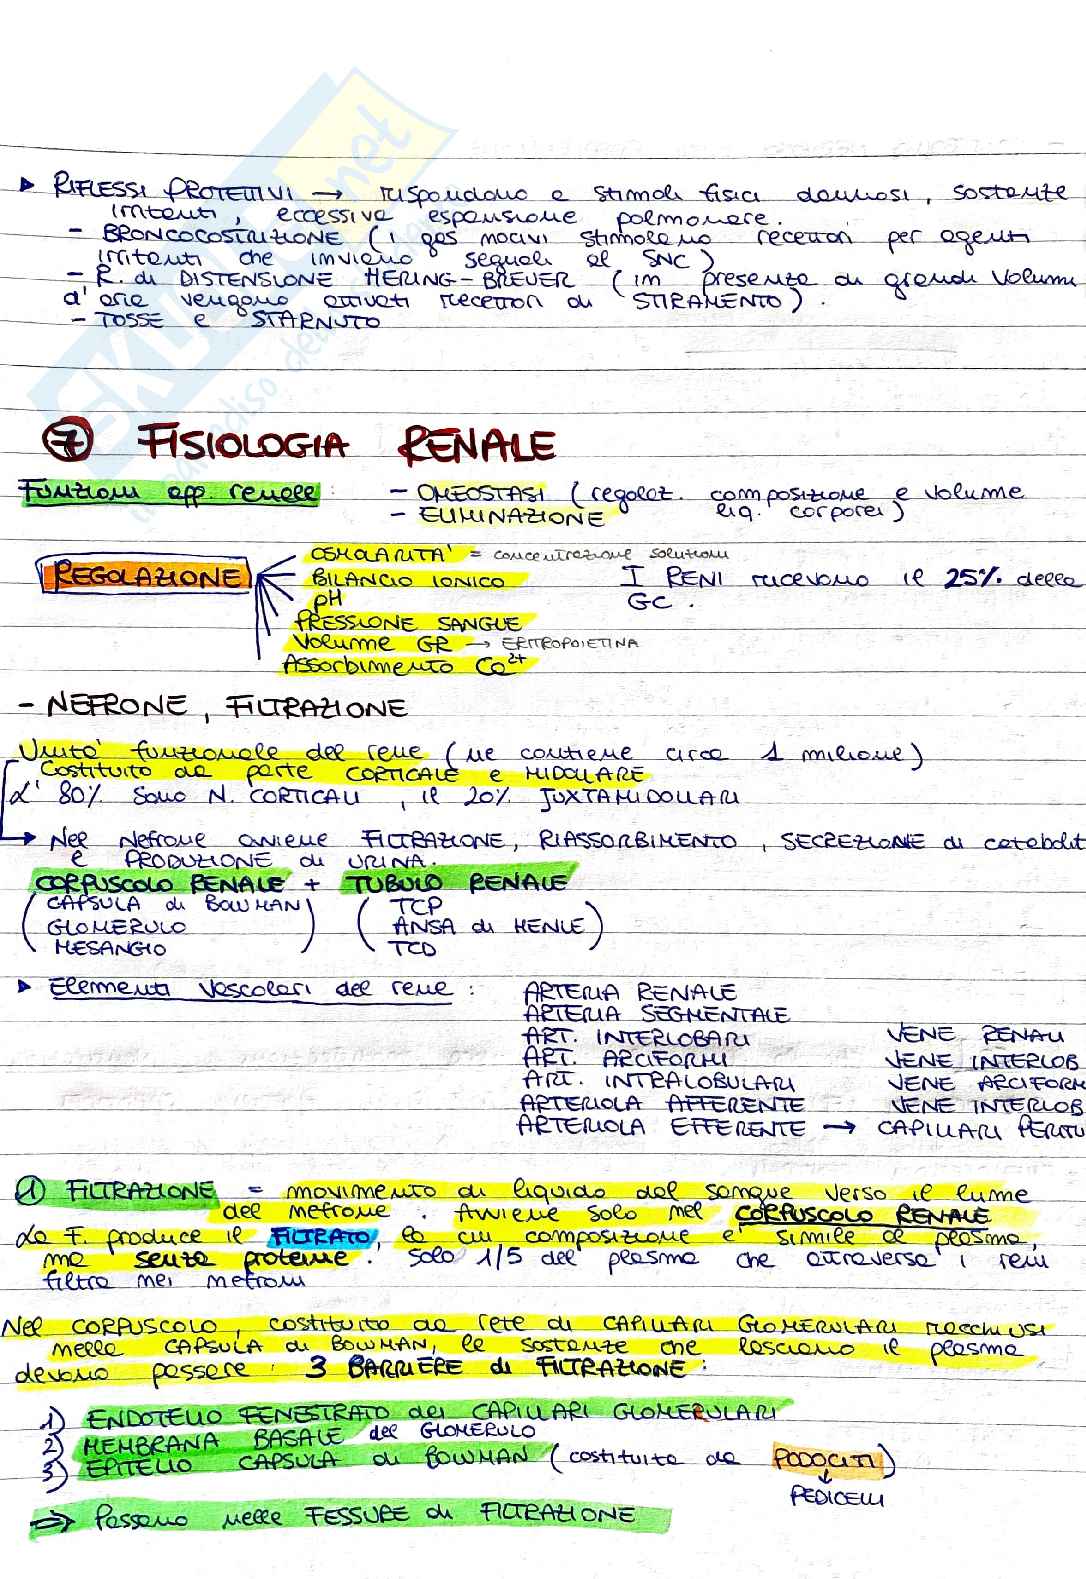 ▸ RIFLESSI PROTETTIVI → rispondono a stimoli fisici dannosi, sostanze
irritanti, eccessiva espansione polmonare.
- BRONCOCOSTRIZIONE (i gas nocivi stimolano recettori per agenti
irritanti che inviano segnali al SNC)
- R. di DISTENSIONE HERING-BREUER (in presenza di grandi volumi
d'aria vengono attivati recettori di STIRAMENTO).
- TOSSE e STARNUTO
SKUOLA.net
7 FISIOLOGIA RENALE
Funzioni app. renale: - OMEOSTASI (regolaz. composizione e volume
- ELIMINAZIONE liq. corporei)
OSMOLARITA' = concentrazione soluzioni
REGOLAZIONE BILANCIO IONICO I RENI ricevono il 25% della
pH GC.
PRESSIONE SANGUE
Volume GR → ERITROPOIETINA
Assorbimento Ca²⁺
- NEFRONE, FILTRAZIONE
Unita' funzionale del rene (ne contiene circa 1 milione)
Costituito da parte CORTICALE e MIDOLLARE
L'80% sono N. CORTICALI, il 20% JUXTAMIDOLLARI
→ Nel Nefrone avviene FILTRAZIONE, RIASSORBIMENTO, SECREZIONE di catabolit
e PRODUZIONE di URINA.
CORPUSCOLO RENALE + TUBULO RENALE
(CAPSULA di BOWMAN) (TCP
GLOMERULO ANSA di HENLE)
MESANGIO TCD
▸ Elementi Vascolari del rene: ARTERIA RENALE
ARTERIA SEGMENTALE
ART. INTERLOBARI VENE RENALI
ART. ARCIFORMI VENE INTERLOB
ART. INTRALOBULARI VENE ARCIFORM
ARTERIOLA AFFERENTE VENE INTERLOB
ARTERIOLA EFFERENTE → CAPILLARI PERITU
1 FILTRAZIONE = movimento di liquido dal sangue verso il lume
del nefrone. Avviene solo nel CORPUSCOLO RENALE
La F. produce il FILTRATO, la cui composizione e' simile al plasma,
ma senza proteine. Solo 1/5 del plasma che attraversa i reni
filtra nei nefroni
Nel CORPUSCOLO, costituito da rete di CAPILLARI GLOMERULARI racchiusi
nella CAPSULA di BOWMAN, le sostanze che lasciano il plasma
devono passare: 3 BARRIERE di FILTRAZIONE:
1) ENDOTELIO FENESTRATO dei CAPILLARI GLOMERULARI
2) MEMBRANA BASALE del GLOMERULO
3) EPITELIO CAPSULA di BOWMAN (costituita da PODOCITI)
↓
PEDICELLI
⇒ Passano nelle FESSURE di FILTRAZIONE